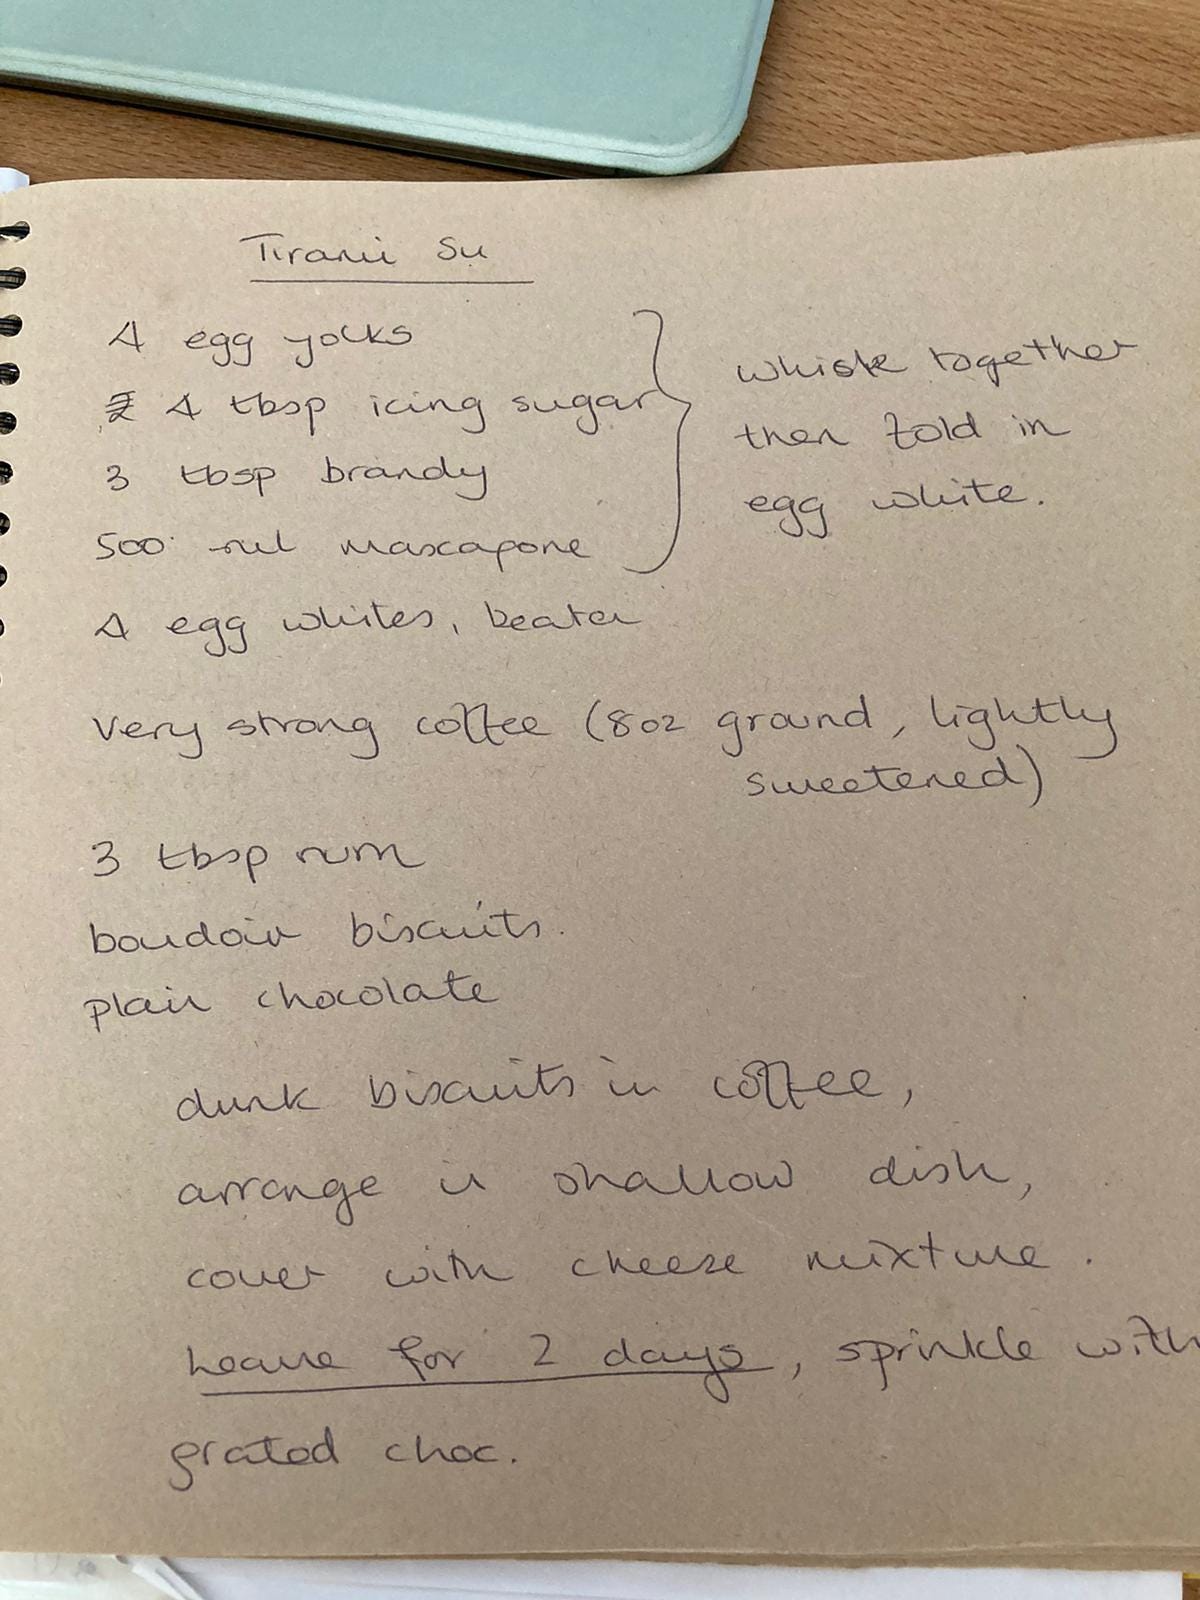 Tirami Su
4 egg yolks
4 tbsp icing sugar
3 tbsp brandy
500 ml mascapone
whisk together
then fold in
egg white.
4 egg whites, beaten
Very strong coffee (8oz ground, lightly
sweetened)
3 tbsp rum
boudoir biscuits.
plain chocolate
dunk biscuits in coffee,
arrange in shallow dish,
cover with cheese mixture.
Leave for 2 days, sprinkle with
grated choc.